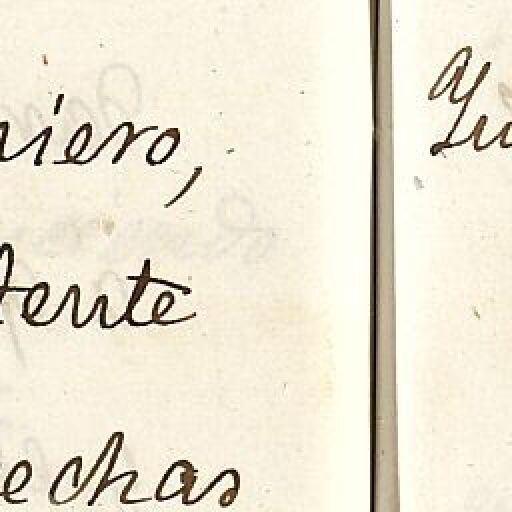 niero,
tente
echas
Yu